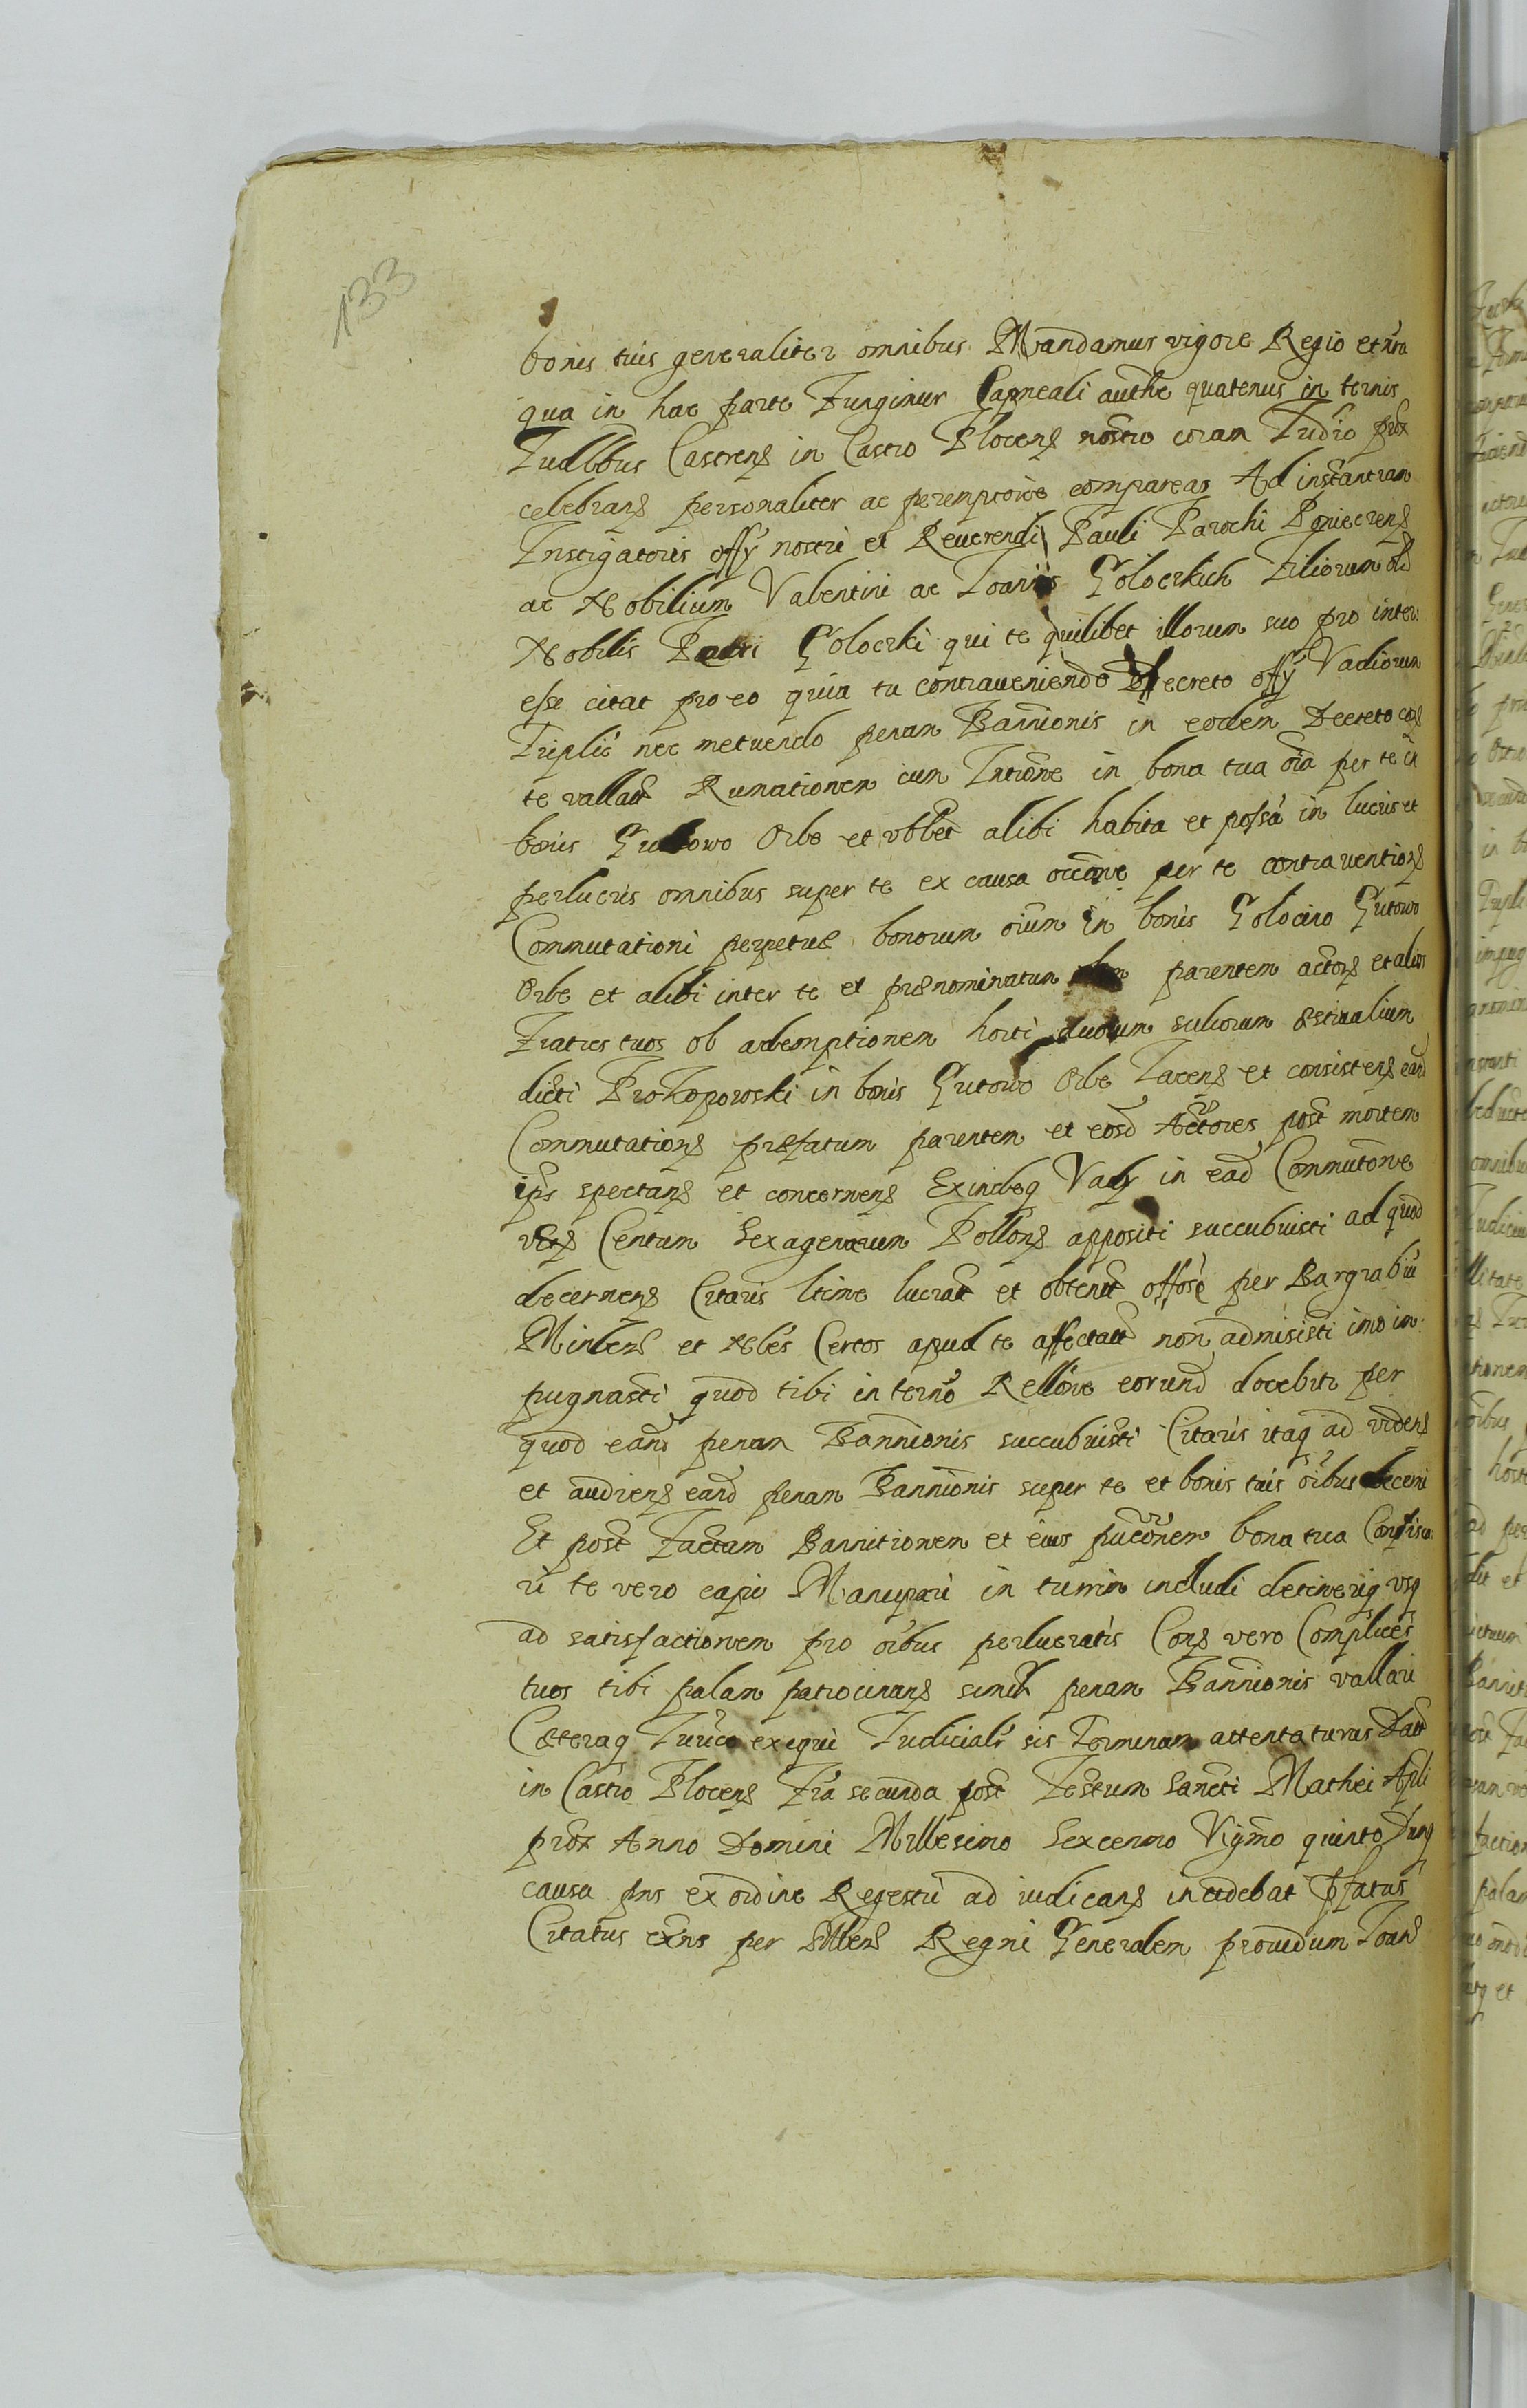 133
bonis tuis generaliter omnibus Mandamus vigore Regio et nra
qua in hac parte Fungimur Capneali authe quatenus in ternis
Iudlbus Castrens in Castro Plocens nostro coram Iudio prox
celebrans personaliter ac peremptorie compareas Ad instantiam
Instigatoris offy nostri et Reverendi Pauli Parochi
ac Nobilium Valentini ac Joanis Goloczkich Filiorum olim
Nobilis Petri Goloczki qui te quilibet illorum suo pro inter
esse citat pro eo quia tu contraveniendo Decreto offy Vadiorum
Triplić nec metuendo penam Bannionis in eodem Decreto
te vallatt Rumationem cum Intione in bona tua oia per te in
bonis Gutowo Orbe et vbbet alibi habita et possa in lucris et
perlucris omnibus super te ex causa occone per te contraventions
Commutationi perpetue bonorum oium in bonis Golocino Gutowo
Orbe et alibi inter te et prænominatum olim parentem actors et alios
Fratres tuos ob ademptionem horti duorum sulcorum æstivalium
dicti Prokopowski in bonis Gutowo Orbe Iacens et consistens eand
Commutations præfatum parentem et eosd Actores post mortem
ips spectans et concernens Exindeq Vady in ead Commutone
Centum Sexagenarum Pollons appositi succubuisti ad quod
decernens Citaris ltime lucratt et obtentt offose per Bargrabiu
Minlem et Nbles Certos apud te affectatt non admisisti imo im
pugnasti quod tibi in terno Rellone eorund docebitr per
quod eand penam Bannionis succubuisti Citaris itaq ad vidend
et audiens eand penam Bannionis super te et bonis tuis oibus decerni
Et post Factam Bannitionem et eius pucconem bona tua Confisca
ri te vero capi Mancipari in turrim includi detineriq vsq
ad satisfactionem pro oibus perlucratis Cons vero Complices
tuos tibi palam patrocinans simili penam Bannionis vallari
Cæteraq Iurica exequi Iudicialr sis Terminum attentaturus Datt
in Castro Plocens Fria secunda post Festum Sancti Mathei Apli
prox Anno Domini Millesimo Sexcenmo Vigmo quinto Dumq
causa pns ex ordine Regestri ad iudicans incidebat Pfatus
Citatus exns per Mlem Regni Generalem providum Joan